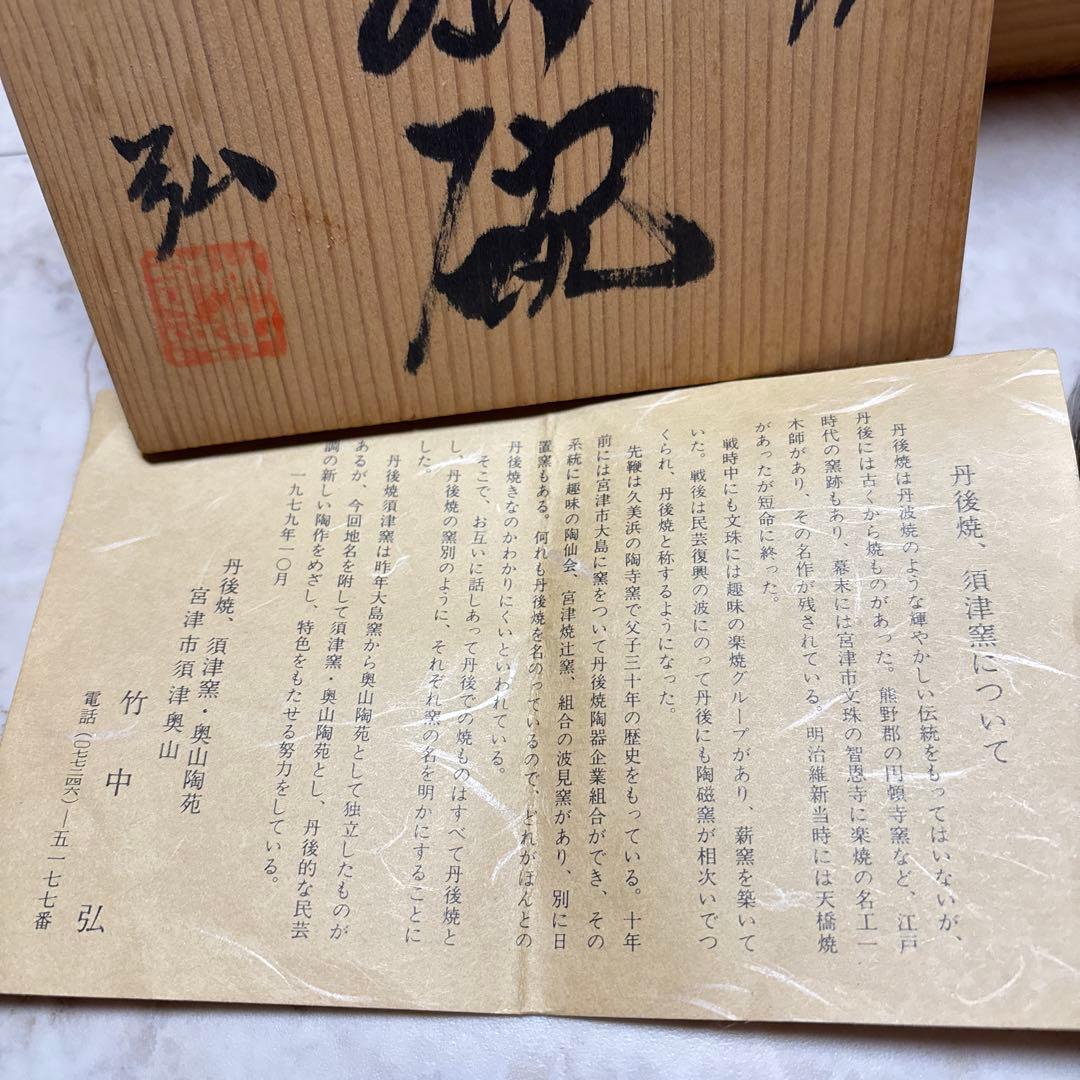 碗
弘
丹後焼、須津窯について
丹後焼は丹波焼のような輝やかしい伝統をもってはいないが、
丹後には古くから焼ものがあった。熊野郡の円頓寺窯など、江戸
時代の窯跡もあり、幕末には宮津市文珠の智恩寺に楽焼の名工一
木師があり、その名作が残されている。明治維新当時には天橋焼
があったが短命に終った。
戦時中にも文珠には趣味の楽焼グループがあり、薪窯を築いて
いた。戦後は民芸復興の波にのって丹後にも陶磁窯が相次いでつ
くられ、丹後焼と称するようになった。
先鞭は久美浜の陶寺窯で父子三十年の歴史をもっている。十年
前には宮津市大島に窯をついて丹後焼陶器企業組合ができ、その
系統に趣味の陶仙会、宮津焼辻窯、組合の波見窯があり、別に日
置窯もある。何れも丹後焼を名のっているので、どれがほんとの
丹後焼きなのかわかりにくいといわれている。
そこで、お互いに話しあって丹後での焼ものはすべて丹後焼と
し、丹後焼の窯別のように、それぞれ窯の名を明かにすることに
した。
丹後焼須津窯は昨年大島窯から奥山陶苑として独立したものが
あるが、今回地名を附して須津窯・奥山陶苑とし、丹後的な民芸
調の新しい陶作をめざし、特色をもたせる努力をしている。
一九七九年一〇月
丹後焼、須津窯・奥山陶苑
宮津市須津奥山
竹中 弘
電話(〇七七二四六)―五一七七番